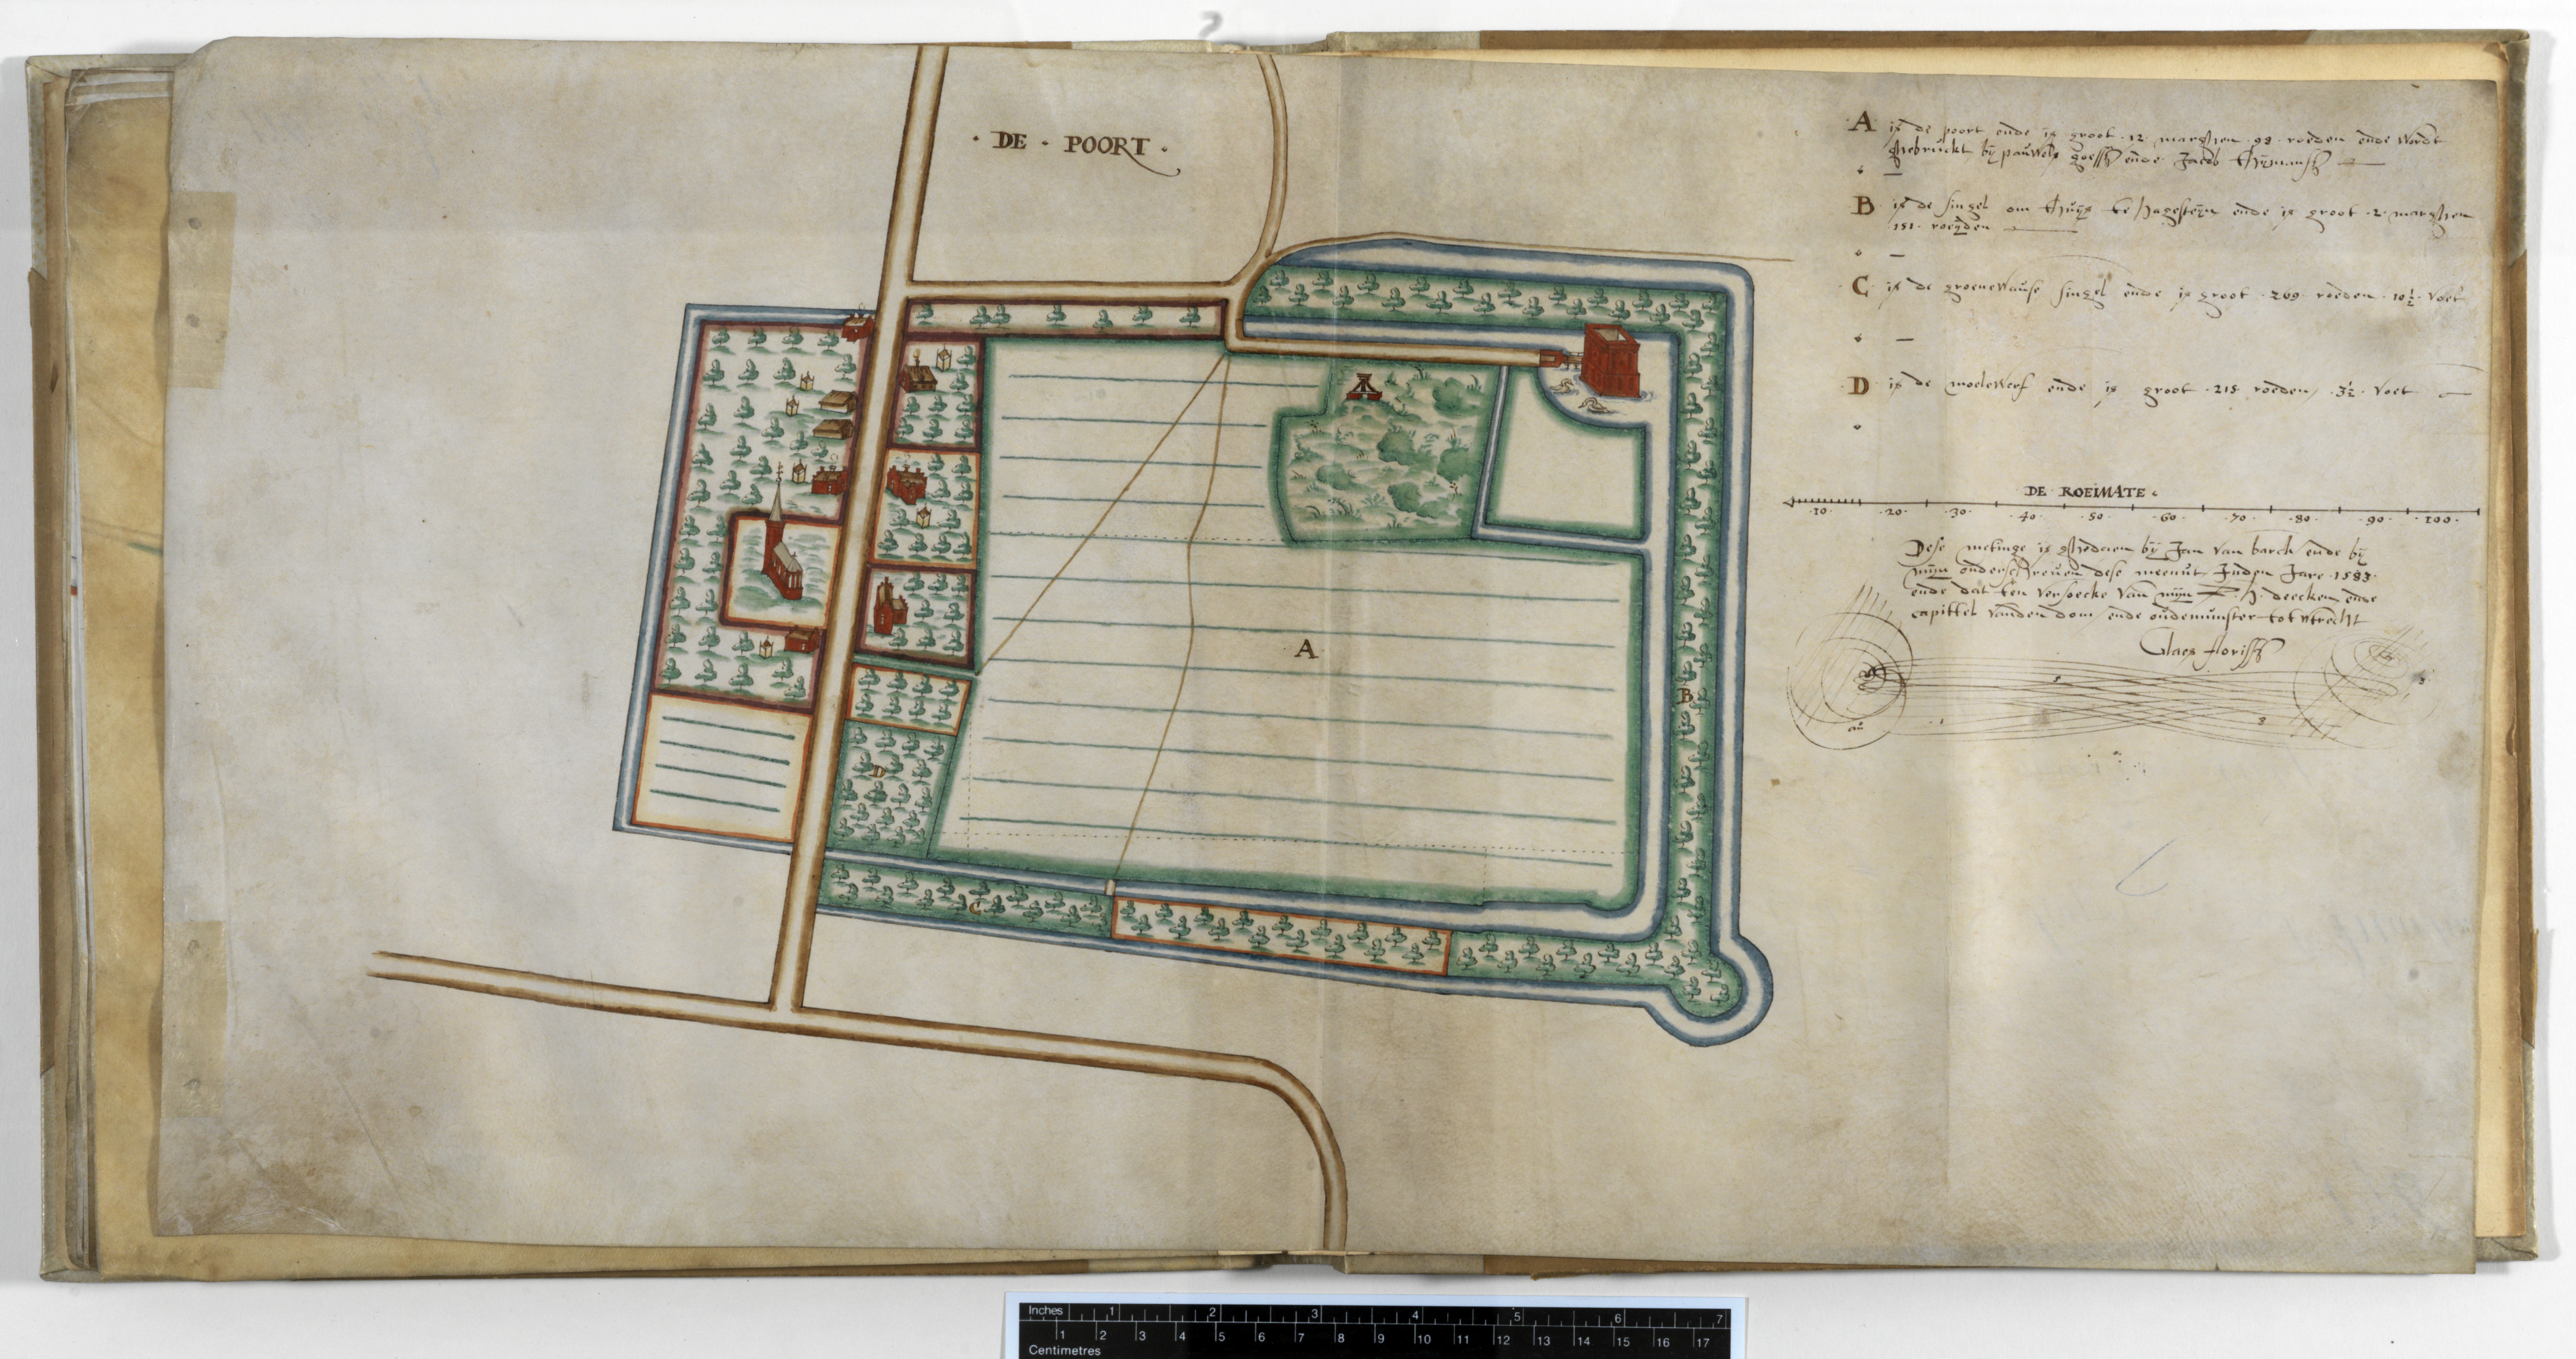 · DE · POORT ·
A is de poort ende is groot · 12 · marghen · 98 · roeden ende wordt
ghebruckt bij pauwels goessz ende Jacob thijmansz
B is de singel om thuijs te hagesteijn ende is groot · 2 · marghen
151 · roeijden
C is de groenewause singel ende is groot · 269 · roeden · 10½ · voet
D is de moelewerf ende is groot · 215 · roeden / · 3½ · voet
DE ROEIMATE
·10· ·20· ·30· ·40· ·50· ·60· ·70· ·80· ·90· ·100·
Dese metinge is ghedaen bij Jan van barch ende bij
mijn onderschreven dese meenut Inden Jare · 1583 ·
ende dat ten versoecke van mijn H. deecken ende
capittel vanden dom / ende oudemunster tot utrecht
Claes florissz
A
B
C
Inches 1 2 3 4 5 6 7
1 2 3 4 5 6 7 8 9 10 11 12 13 14 15 16 17
Centimetres